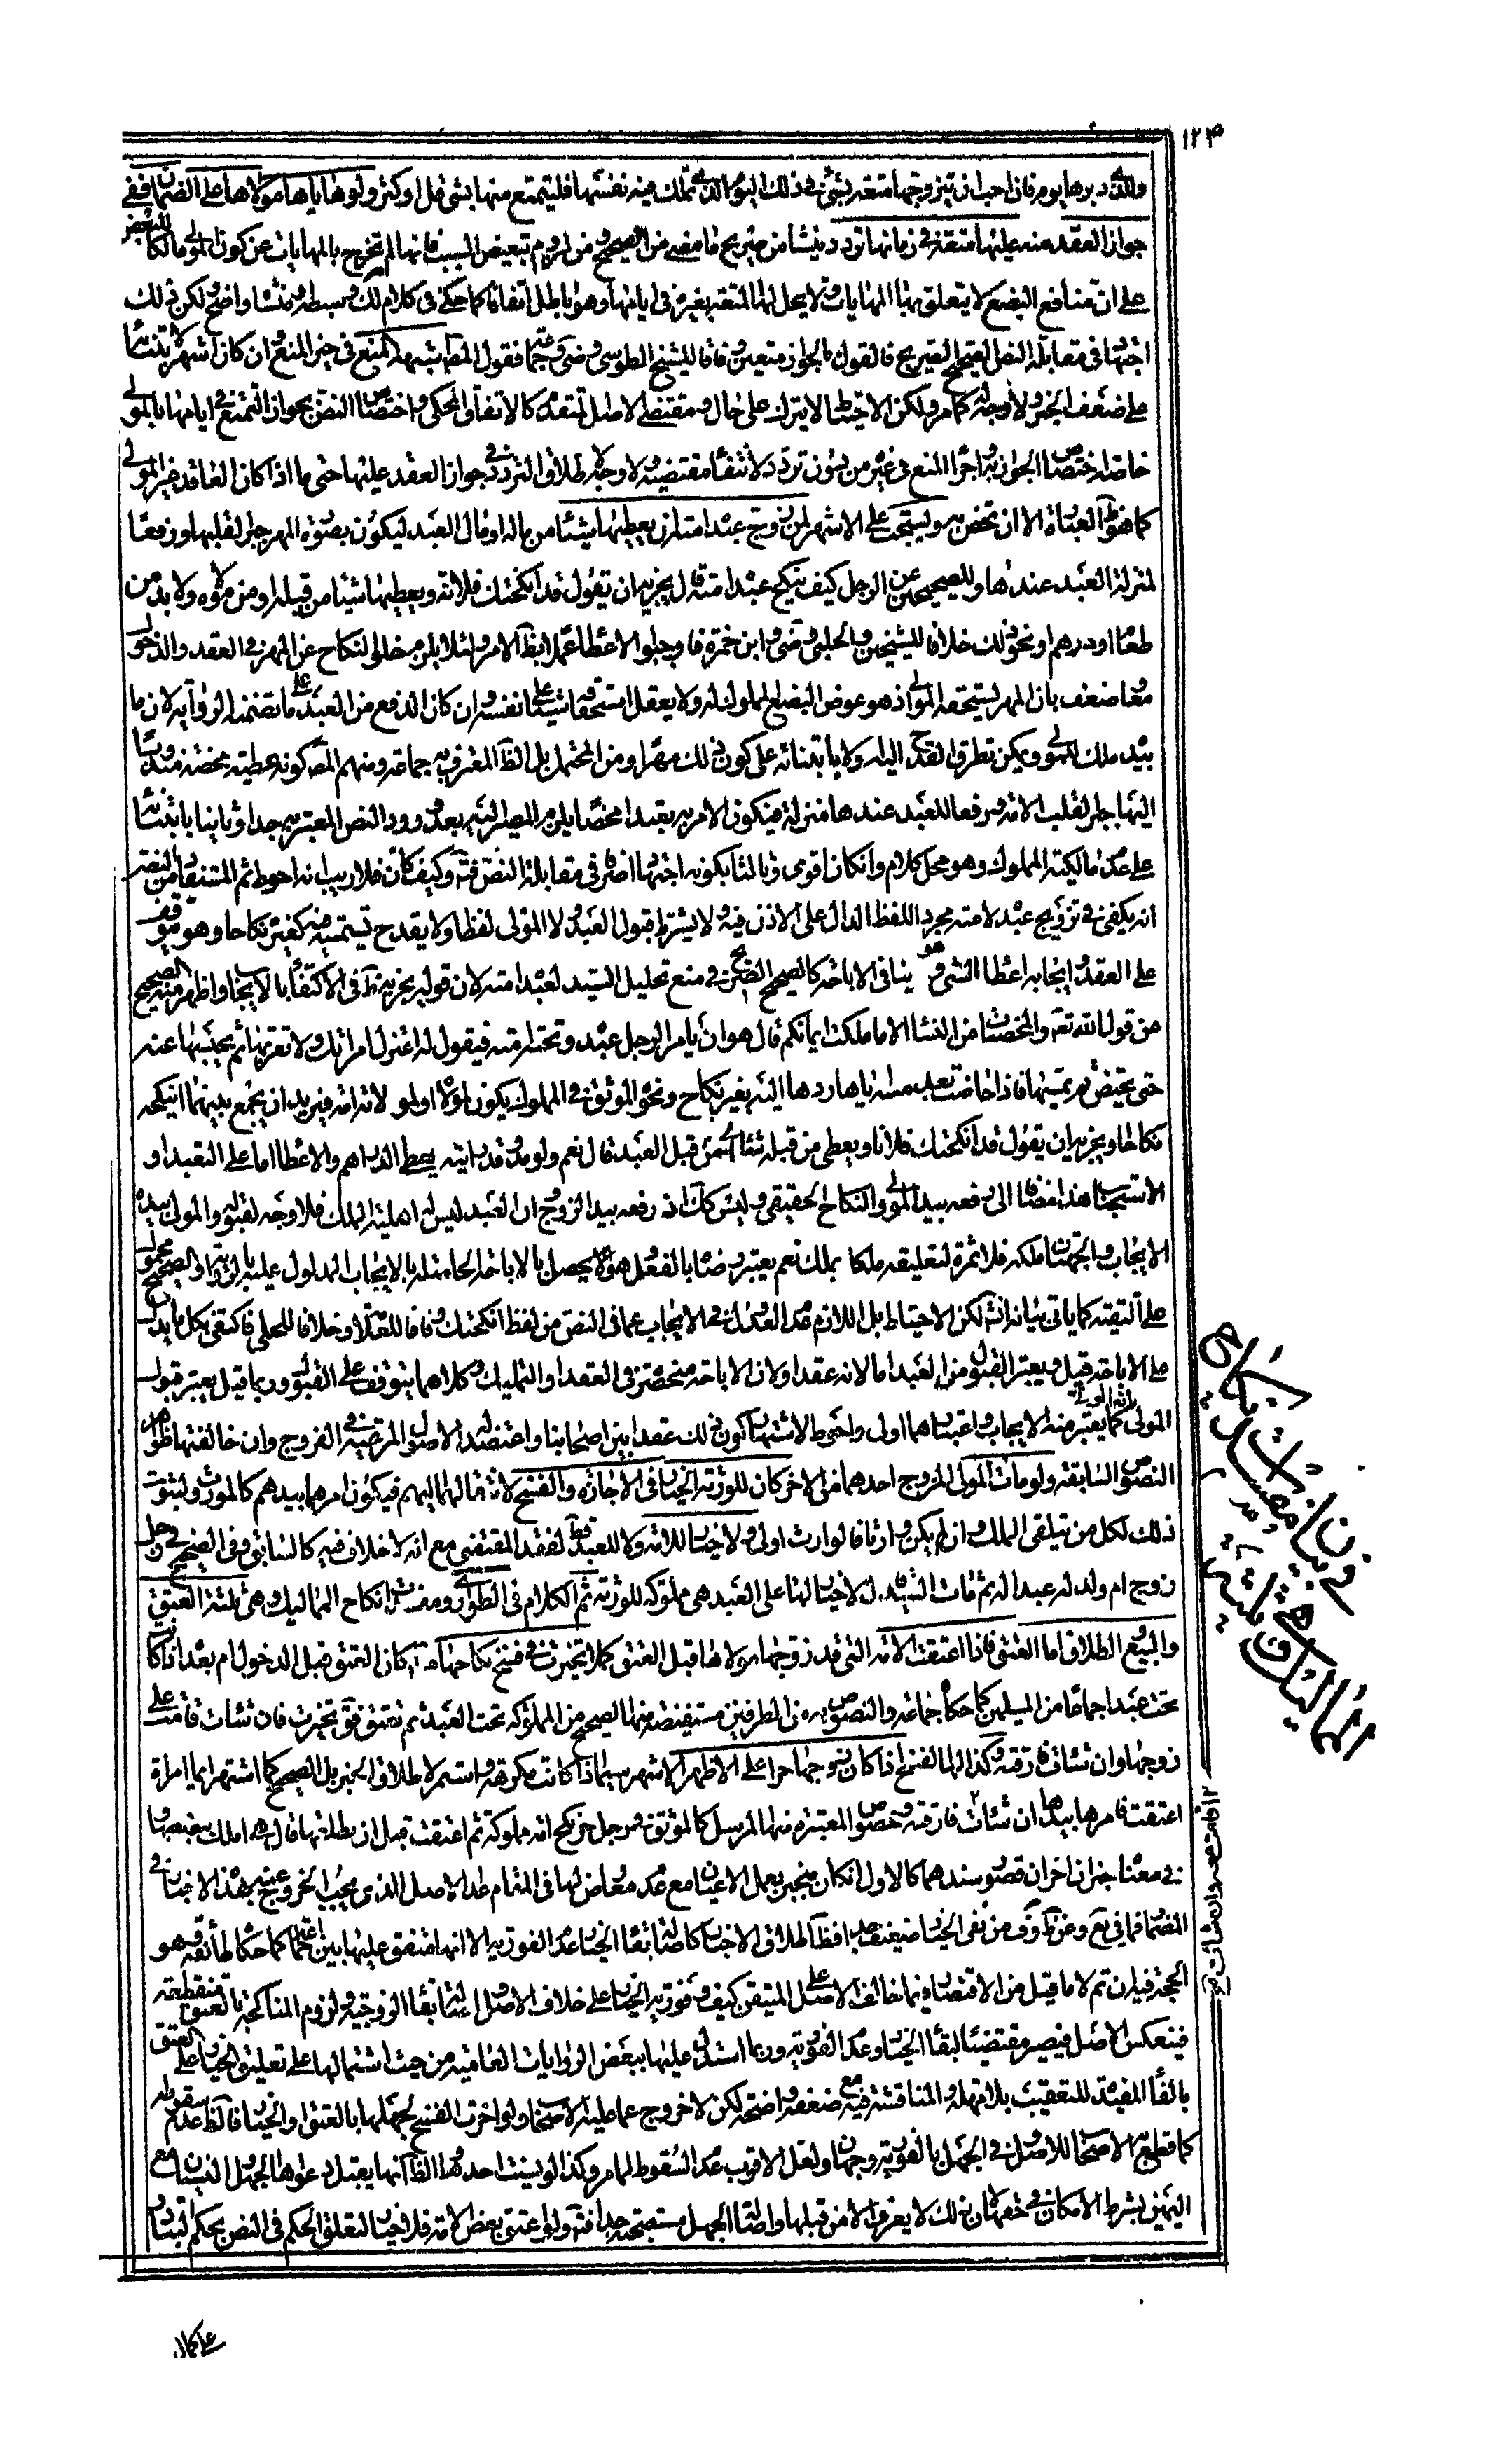 ١٢٤
والذي دبرها يوم فان احب ان يتزوجها متعة بشئ في ذلك اليوم الذي تملك فيه نفسها فليتمتع منها بشئ قل او كثر ولو هاياها مولاها على الزمان ففي
جواز العقد منه عليها متعة في زمانها تردد ينشأ من صريح ما مضى من الصحيح ومن لزوم تبعيض السبب فانها لم تخرج بالمهاياة عن كون المولى مالكا للبعض
على ان منافع البضع لا يتعلق بها المهاياة ولا يحل لها المتعة بغيره في ايامها وهو باطل اتفاقا كما حكى في كلام لك وسبطه ومنشاؤه واضح لكن ذلك
اجتهاد في مقابلة النص الصحيح الصريح فالقول بالجواز متعين وفاقا للشيخ الطوسي وضى وجماعة فقول المصنف اشبهه المنع في حيز المنع وان كان اشهر لابتنائه
على ضعف الخبر ولا وجه له كما مر ولكن الاحتياط لا يترك على حال ومقتضى الاصل المتقدم كالاتفاق المحكي واختصاص النص بجواز التمتع في ايامها بالمولى
خاصة اختصاص الجواز به واجراء المنع في غيره من دون تردد لانتفاء مقتضيه ولا وجه لاطلاق التردد في جواز العقد عليها حتى ما اذا كان العاقد غير المولى
كما هو ظ العبارة الا ان تخص به ويستحب على الاشهر لمن زوج عبده امته ان يعطيها شيئا من ماله او مال العبد ليكون بصورة المهر جبرا لقلبها ورفعا
لمنزلة العبد عندها وللصحيحين عن الرجل كيف ينكح عبده امته قال يجزيه ان تقول قد انكحتك فلانة ويعطيها شيئا من قبله او من مولاه ولا بد من
طعام او درهم او نحو ذلك خلافا للشيخين والحلبي وضى وابن حمزة فاوجبوا الاعطاء عملا بظ الامر ولئلا يلزم خلو النكاح عن المهر في العقد والدخول
معا وضعف بان المهر يستحقه المولى اذ هو عوض البضع المملوك له ولا يعقل استحقاقه شيئا على نفسه وان كان الدفع من العبد على ما تضمنه الرواية لان ما
بيده ملك المولى ويمكن تطرق القدح اليه اولا بابتنائه على كون ذلك مهرا ومن المحتمل بل الظ المعترف به جماعة ومنهم المص كونه عطية محضة مندوبا
اليها جبرا لقلب الامة ورفعا للعبد عندها منزلة فيكون الامر به تعبدا محضا يلزم المصير اليه بعد ورود النص المعتبر به جدا وثانيا بابتنائه
على عدم مالكية المملوك وهو محل كلام وان كان اقوى وثالثا بكونه اجتهادا صرفا في مقابلة النص فت وكيف كان فلا ريب انه احوط ثم المستفاد من النص
انه يكفي في تزويج عبده لامته مجرد اللفظ الدال على الاذن فيه ولا يشترط قبول العبد ولا المولى لفظا ولا يقدح تسميته فيه كغيره نكاحا وهو متوقف
على العقد وايجابه اعطاء الشئ وهو ينافي الاباحة كالصحيح الصريح في منع تحليل السيد لعبده امته لان قوله يجزيه ظ في الاكتفاء بالايجاب واظهر منه الصحيح
عن قول الله تعه والمحصنات من النساء الا ما ملكت ايمانكم قال هو ان يامر الرجل عبده وتحته امته فيقول له اعتزل امراتك ولا تقربها ثم يحبسها عنه
حتى يحيض ثم يمسها فاذا حاضت بعد مسه اياها ردها اليه بغير نكاح ونحوه الموثق في المملوك يكون لمولاه او لمولاته امة فيريد ان يجمع بينهما اينكحه
نكاحا او يجزيه ان يقول قد انكحتك فلانة ويعطي من قبله شيئا او من قبل العبد قال نعم ولو مدا وقد رايته يعطي الدراهم والاعطاء اما على التعبد او
الاستحباب هذا مضافا الى رفعه بيد المولى والنكاح الحقيقي وليس كك اذ رفعه بيد الزوج وان العبد ليس له اهلية الملك فلا وجه لقبوله والمولى بيده
الايجاب والجهتان ملكه فلا ثمرة لتعليقه ملكا بملك نعم يعتبر رضاه بالفعل وهو يحصل بالاباحة الحاصلة بالايجاب المدلول عليه بالرواية والصحيح محمول
على التقية كما ياتي بيانه انش لكن الاحتياط بل اللازم عدم العدول في الايجاب عما في النص من لفظ انكحتك وفاقا للعلامة وخلافا للحلي فاكتفى بكل ما يدل
على الاباحة قيل ويعتبر القبول من العبد اما لانه عقد او لان الاباحة منحصرة في العقد او التمليك وكلاهما يتوقف على القبول وربما قيل يعتبر قبول
المولى لانه الولي كما يعتبر منه الايجاب واعتبارهما اولى واحوط لاشتهار كون ذلك عقدا بين اصحابنا واعتضد له الاصول المرعية في الفروج وان خالفتها ظواهر
النصوص السابقة ولو مات المولى المزوج احدهما من الاخر كان للورثة الخيار في الاجازة والفسخ لانتقالهما اليهم فيكون امرهما بيدهم كالمورث ولثبوت
ذلك لكل من يتلقى الملك وان لم يكن وارثا فالوارث اولى ولا خيار للامة ولا للعبد قط لفقد المقتضي مع انه لا خلاف فيه كالسابق وفي الصحيح في رجل
زوج ام ولد له عبدا له ثم مات السيد قال لا خيار لها على العبد هي مملوكة للورثة ثم الكلام في الطوارئ ومفسدات نكاح المماليك وهي ثلثة العتق
والبيع والطلاق اما العتق فاذا اعتقت الامة التي قد زوجها مولاها قبل العتق كملا تخيرت في فسخ نكاحها سواء كان العتق قبل الدخول ام بعده اذا كانت
تحت عبد اجماعا من المسلمين كما حكاه جماعة والنصوص به من الطرفين مستفيضة منها الصحيح عن المملوكة تحت العبد ثم تعتق فق تخيرت فان شائت قامت على
زوجها وان شائت فارقته وكذا لها الفسخ اذا كان زوجها حرا على الاظهر الاشهر سيما اذا كانت مكرهة واستمر لاطلاق الخبر بل الصحيح كما اشتهر ايما امراة
اعتقت فامرها بيدها ان شائت فارقته وخصوص المعتبرة منها المرسل كالموثق في رجل حر نكح امة مملوكة ثم اعتقت قبل ان يطلقها قال هي املك ببضعها
في معناه خبران اخران وقصور سندهما كالاول ان كان منجبر بعمل الاعيان مع عدم معارض لها في المقام عدا الاصل الذي يجب الخروج عنه بهذه الاخبار
المضما فما في يع وعن ط وف من نفي الخيار ضعيف جدا وظ اطلاق الاخبار كاصالة بقاء الخيار عدم الفورية الا انها متفق عليها بين اصحابنا كما حكاه طائفة وهو
الحجة فيه ان تم لا ما قيل من الاقتصار فيما خالف الاصل على المتيقن كيف وفورية الخيار على خلاف الاصول اذ اصالة بقاء الزوجية ولزوم المناكحة بالعتق منقطعة
فينعكس الاصل فيصير مقتضيا لبقاء الخيار وعدم الفورية وربما استدل عليها ببعض الروايات العامية من حيث اشتمالها على تعليق الخيار على العتق
بالفاء المفيدة للتعقيب بلا مهلة والمناقشة فيه مع ضعفه واضحة لكن لا خروج عما عليه الاصحاب ولو اخرت الفسخ لجهلها بالعتق او الخيار فالظ عدم سقوطه
كما قطع به الاصحاب للاصول وفي الجهل بالفورية وجهان ولعل الاقرب عدم السقوط لما مر وكذا لو نسيت احدهما والظ انها يقبل دعواها الجهل والنسيان مع
اليمين بشرط الامكان في حقها لان ذلك لا يعرف الا من قبلها واصالة الجهل مستصحبة جدا فت ولو اعتق بعض الامة فلا خيار لتعلق الحكم في النص بحكم التبادر
في نكاح
المماليك
على كمال